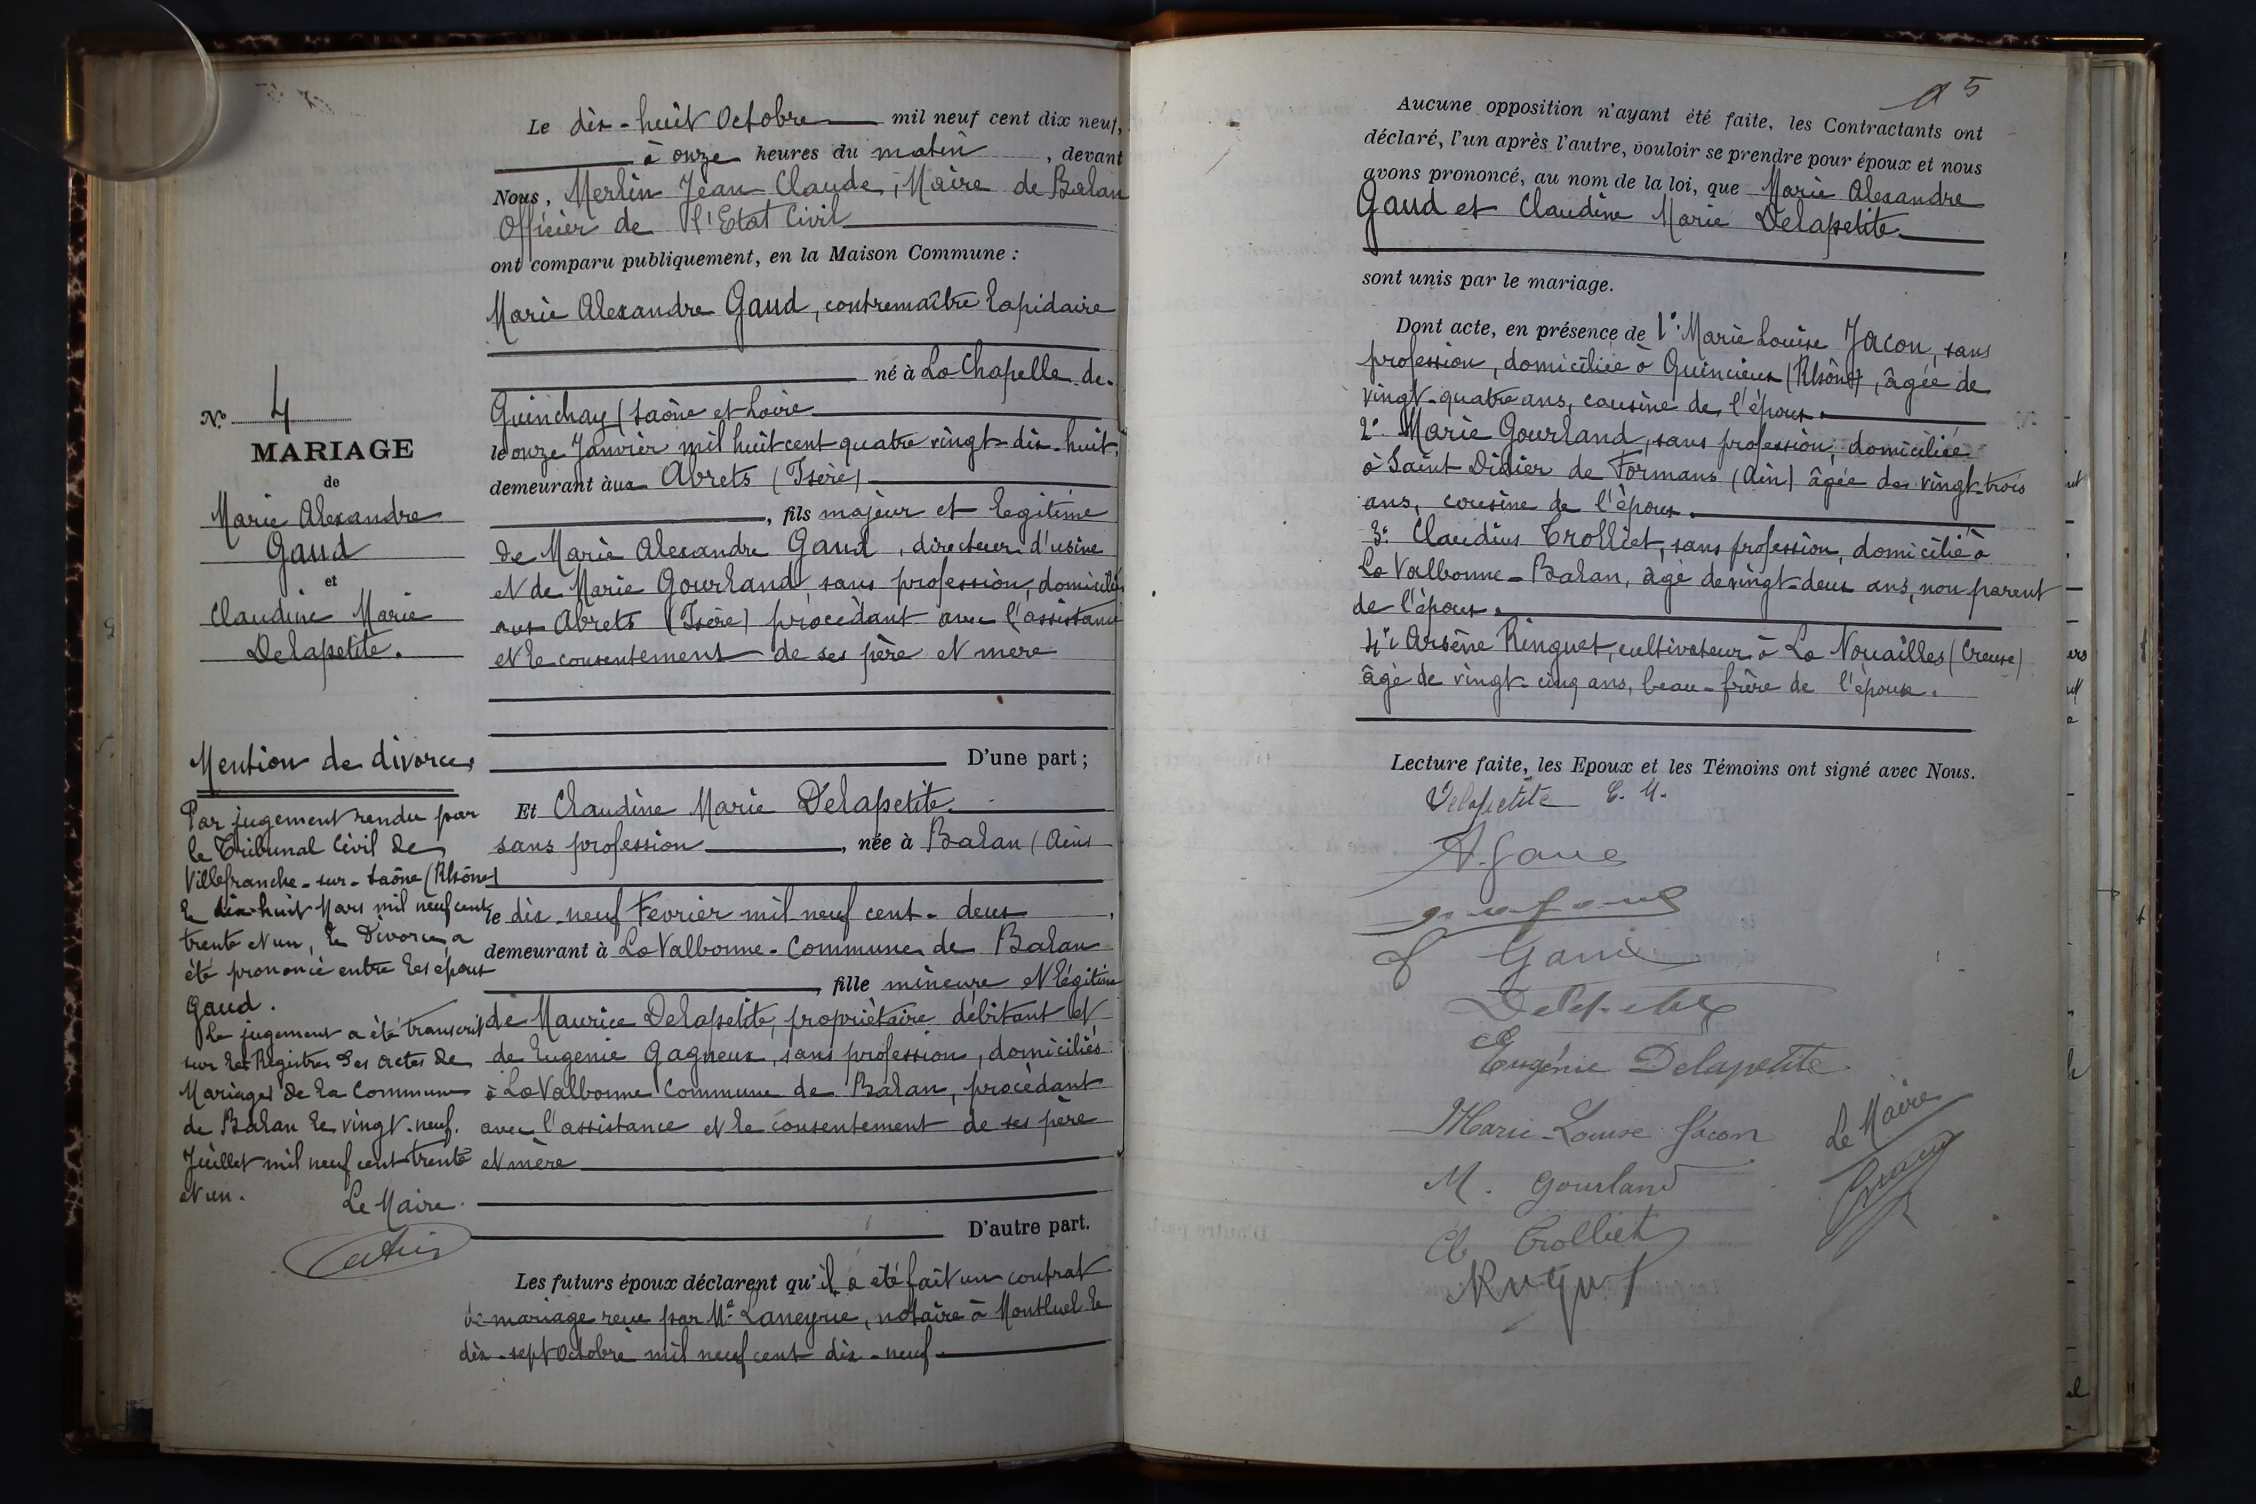 Le dix-huit Octobre mil neuf cent dix neuf,
à onze heures du matin, devant
Nous, Merlin Jean Claude, Maire de Balan
Officier de l'Etat Civil
ont comparu publiquement, en la Maison Commune :
Marie Alexandre Gaud, contremaître lapidaire
né à La Chapelle de
Guinchay (Saône et Loire
le onze Janvier mil huit cent quatre vingt-dix-huit,
demeurant aux Abrets (Isère)
, fils majeur et légitime
de Marie Alexandre Gaud, directeur d'usine
et de Marie Gourland, sans profession, domiciliés
aux Abrets (Isère) procédant avec l'assistance
et le consentement de ses père et mère
D'une part ;
Et Claudine Marie Delapetite
sans profession, née à Balan (Ain)
le dix-neuf Février mil neuf cent-deux,
demeurant à La Valbonne-Commune de Balan
, fille mineure et légitime
de Maurice Delapetite, propriétaire débitant et
de Eugénie Gagneux, sans profession, domiciliés
à La Valbonne Commune de Balan, procédant
avec l'assistance et le consentement de ses père
et mère
D'autre part.
Les futurs époux déclarent qu'il a été fait un contrat
de mariage reçu par Me Laneyrie, notaire à Montluel le
dix-sept Octobre mil neuf cent dix-neuf
No 4
MARIAGE
de
Marie Alexandre
Gaud
et
Claudine Marie
Delapetite.
Mention de divorce
Par jugement rendu par
le Tribunal Civil de
Villefranche-sur-Saône (Rhône)
le dix-huit Mars mil neuf cent
trente et un, le Divorce a
été prononcé entre les époux
Gaud.
Le jugement a été transcrit
sur les Registres des actes de
Mariages de la Commune
de Balan le vingt-neuf
Juillet mil neuf cent trente
et un.
Le Maire
5
Aucune opposition n'ayant été faite, les Contractants ont
déclaré, l'un après l'autre, vouloir se prendre pour époux et nous
avons prononcé, au nom de la loi, que Marie Alexandre
Gaud et Claudine Marie Delapetite
sont unis par le mariage.
Dont acte, en présence de 1° Marie Louise Jacon, sans
profession, domiciliée à Quincieux (Rhône), âgée de
vingt-quatre ans, cousine de l'époux.
2° Marie Gourland, sans profession, domiciliée
à Saint Didier de Formans (Ain) âgée de vingt-trois
ans, cousine de l'époux.
3° Claudius Trolliet, sans profession, domicilié à
La Valbonne-Balan, âgé de vingt-deux ans, non parent
de l'époux.
4° Arsène Ringuet, cultivateur à La Nouailles (Creuse)
âgé de vingt-cinq ans, beau-frère de l'épouse.
Lecture faite, les Epoux et les Témoins ont signé avec Nous.
Delapetite C. M.
A. Gaud
Gaud
Delapetite
Eugénie Delapetite
Marie-Louise Jacon
Le Maire
M. Gourland
Cl Trolliet